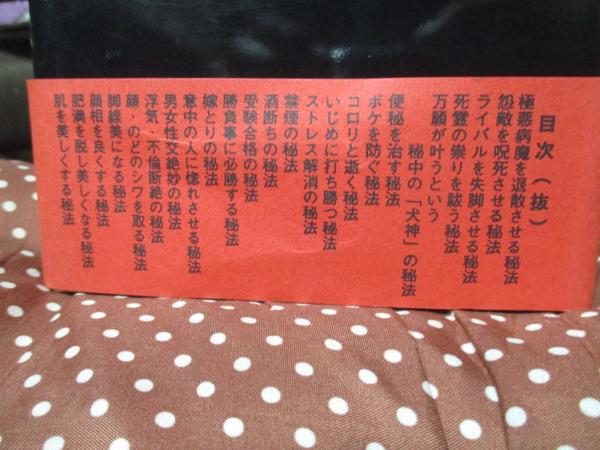 目次（抜）
極悪病魔を退散させる秘法
怨敵を呪死させる秘法
ライバルを失脚させる秘法
死霊の祟りを祓う秘法
万願が叶うという
秘中の「犬神」の秘法
便秘を治す秘法
ボケを防ぐ秘法
コロリと逝く秘法
いじめに打ち勝つ秘法
ストレス解消の秘法
禁煙の秘法
酒断ちの秘法
受験合格の秘法
勝負事に必勝する秘法
嫁とりの秘法
意中の人に惚れさせる秘法
男女性交絶妙の秘法
浮気、不倫断絶の秘法
顔・のどのシワを取る秘法
脚線美になる秘法
顔相を良くする秘法
肥満を脱し美しくなる秘法
肌を美しくする秘法